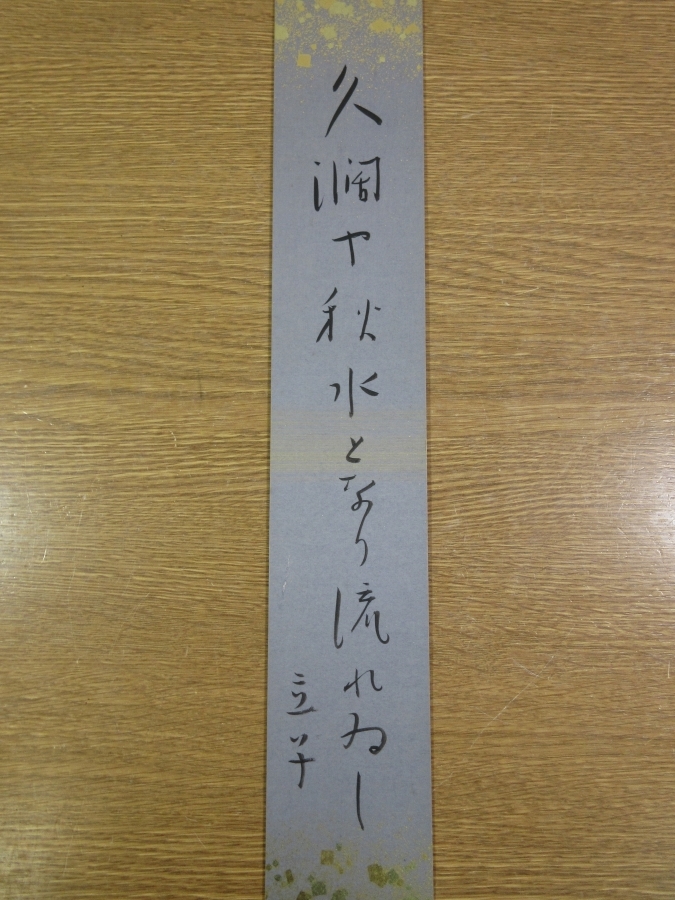 久濶や秋水となり流れゐし
立